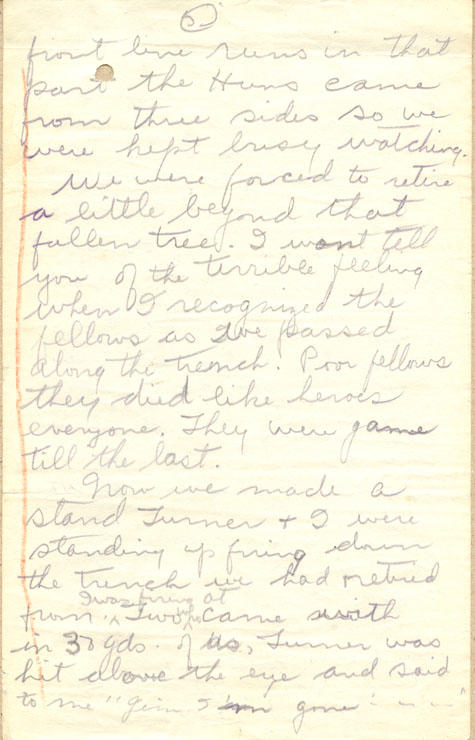 5
front line runs in that
part the Huns came
from three sides so we
were kept busy watching.
We were forced to retire
a little beyond that
fallen tree. I wont tell
you of the terrible feeling
when I recognized the
fellows as we passed
along the trench. Poor fellows
they died like heroes
everyone. They were game
till the last.
Now we made a
stand Turner + I were
standing up firing down
the trench we had retired
I was firing at
from. Two who came with
in 30 yds. of us, Turner was
hit above the eye and said
to me "Jim I'm gone